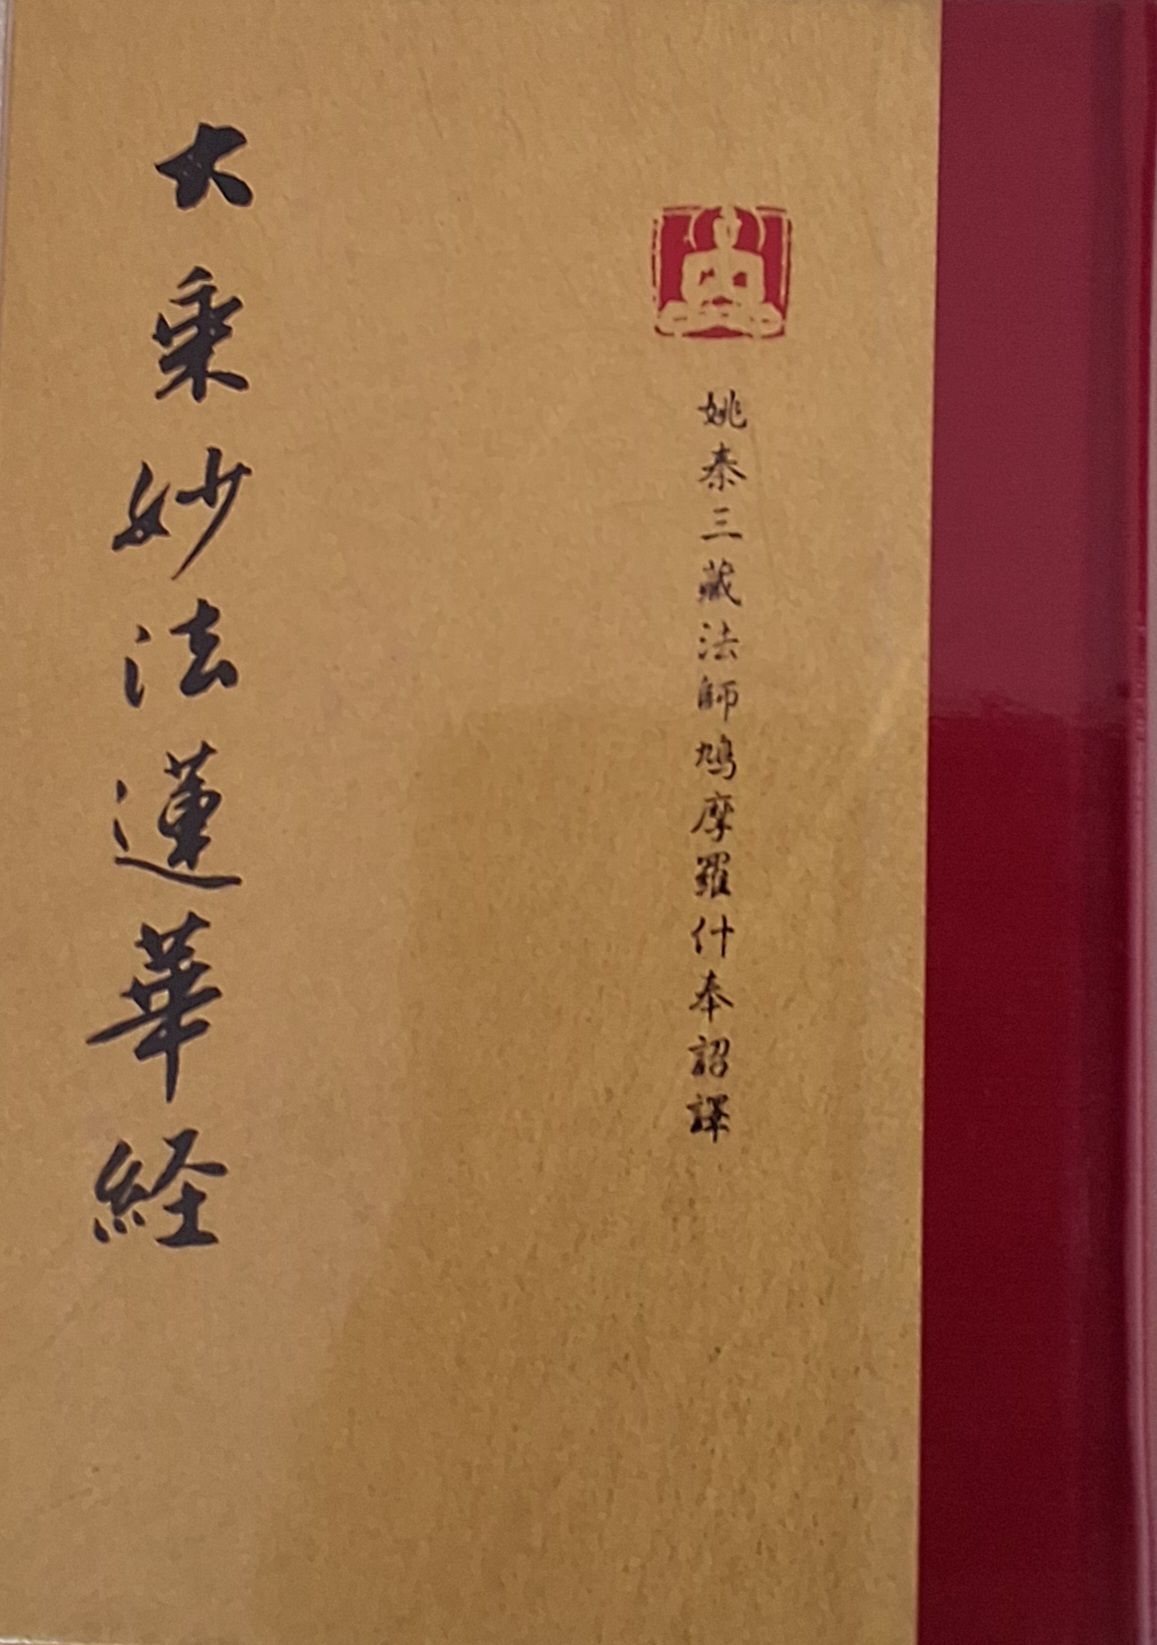 姚秦三藏法師鳩摩羅什奉詔譯
大乘妙法蓮華経